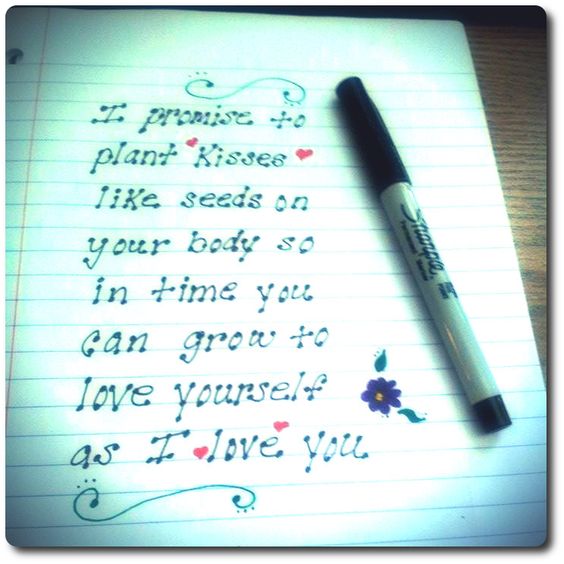 I promise to
plant Kisses
like seeds on
your body so
in time you
can grow to
love yourself
as I love you
Sharpie